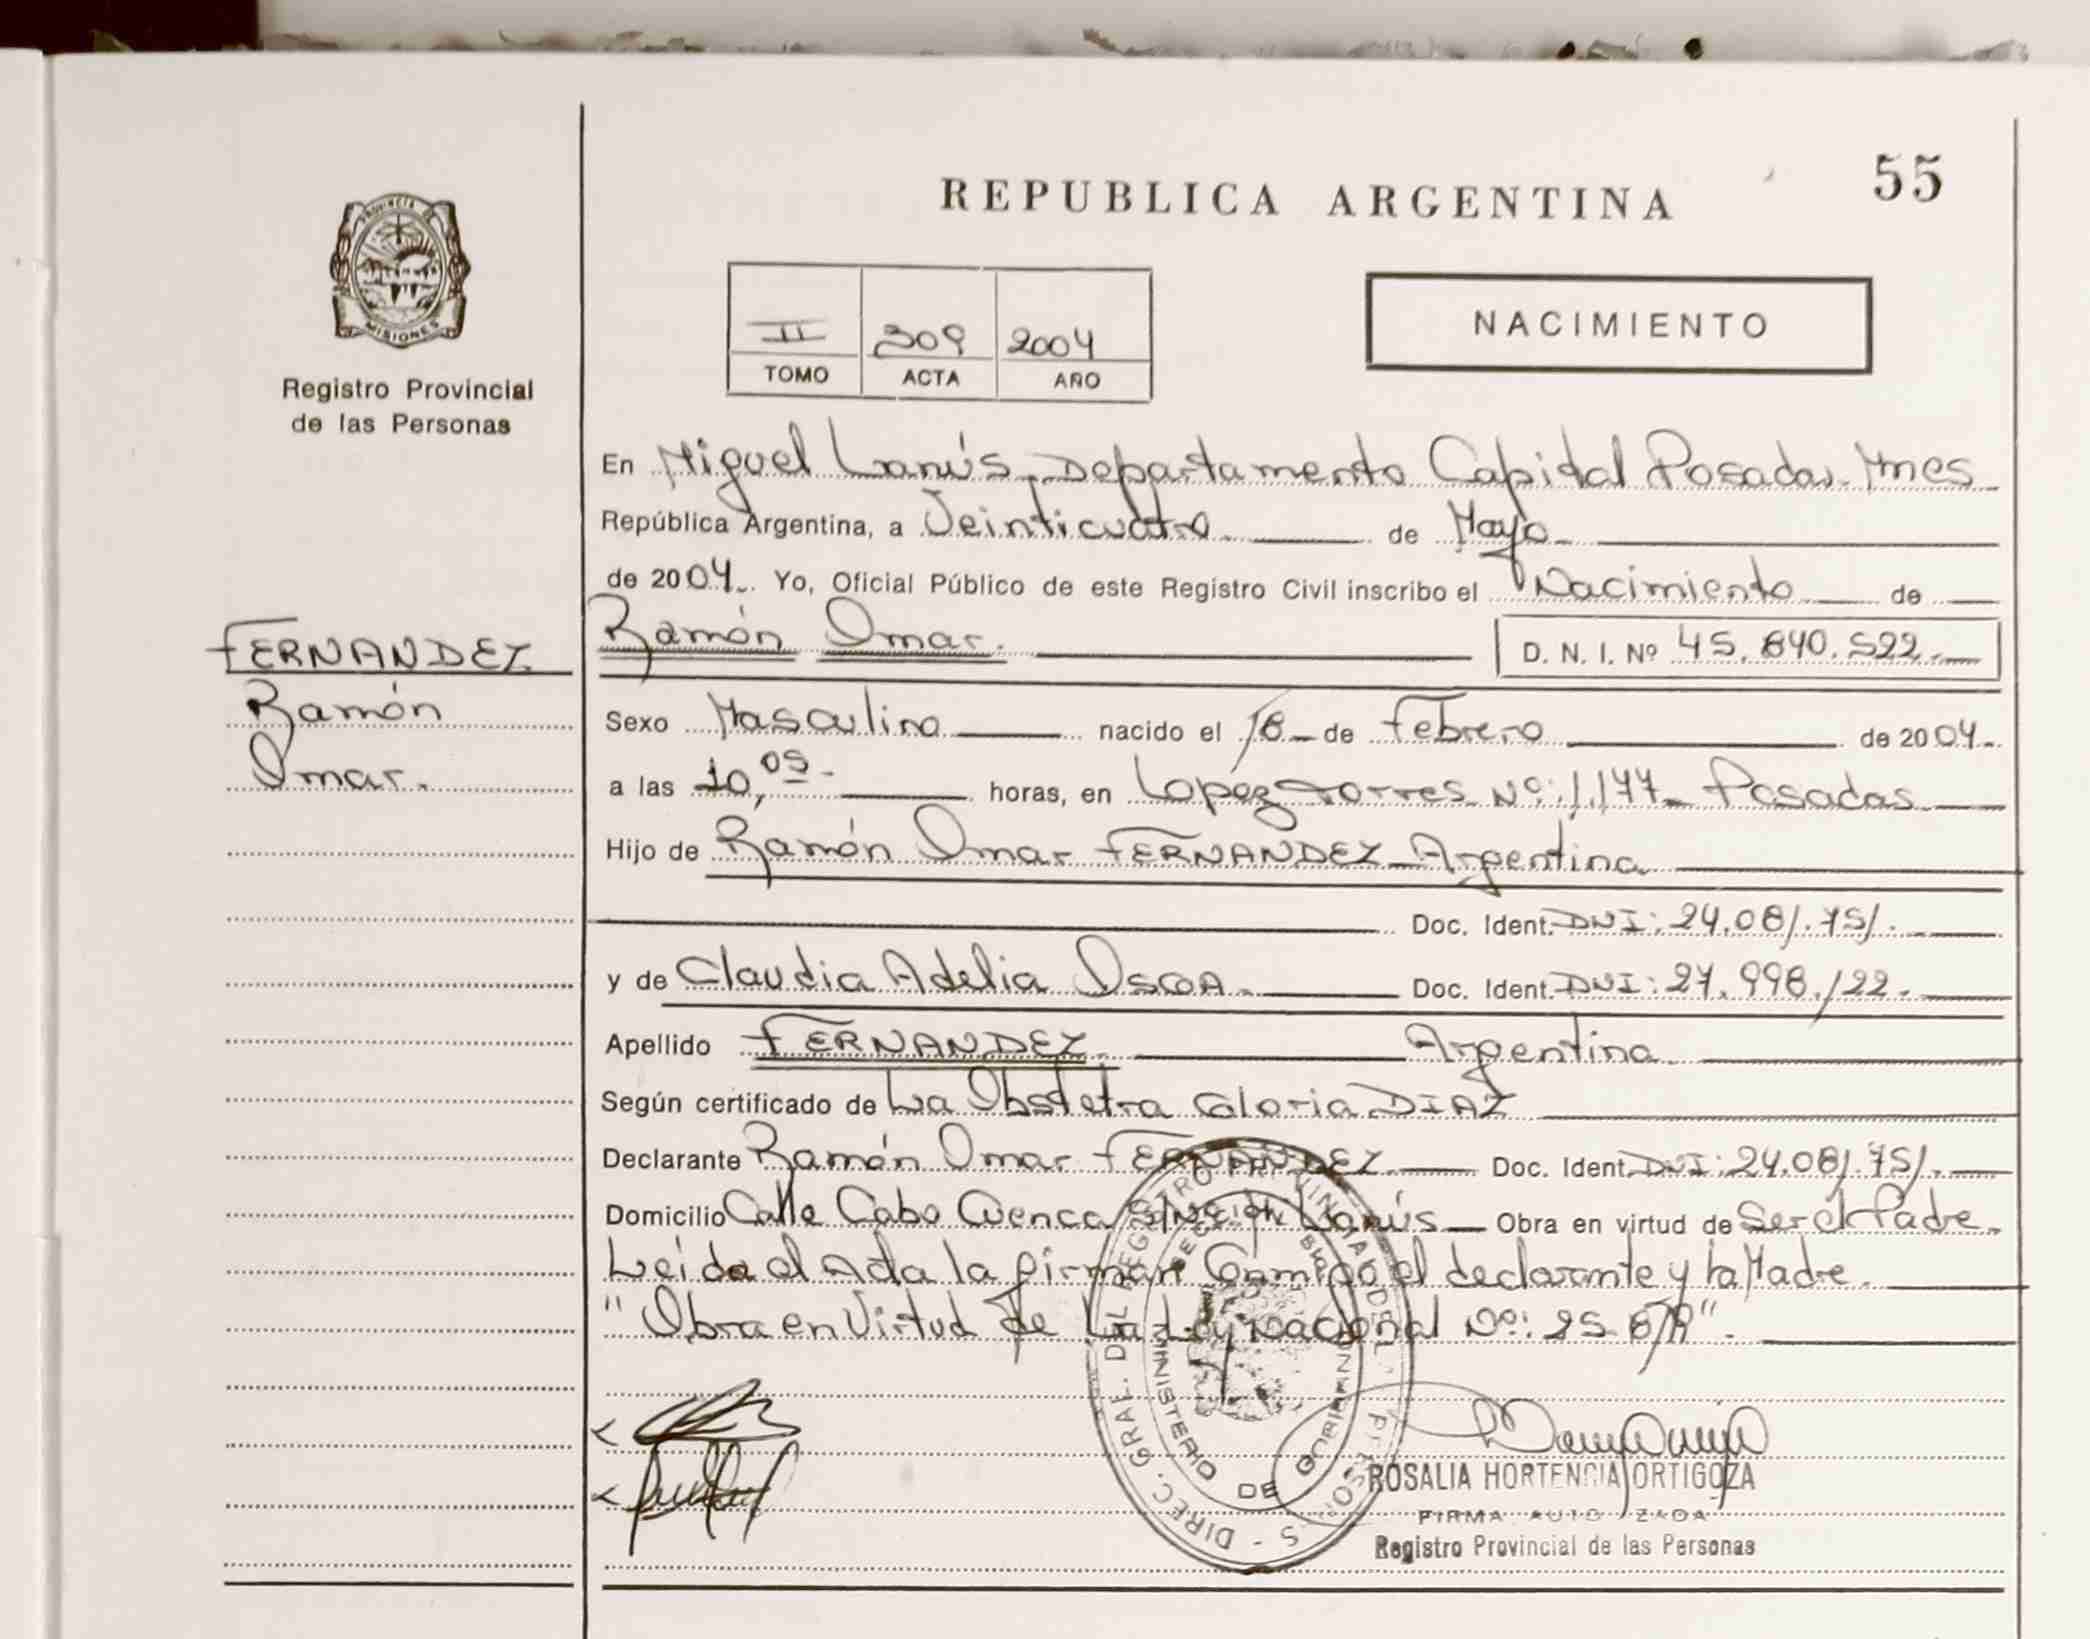 REPUBLICA ARGENTINA
55
PROVINCIA DE
MISIONES
Registro Provincial
de las Personas
II 309 2004
TOMO ACTA AÑO
NACIMIENTO
En Miguel Lanús Departamento Capital Posadas Mnes
República Argentina, a Veinticuatro de Mayo
de 2004. Yo, Oficial Público de este Registro Civil inscribo el Nacimiento de
FERNANDEZ
Ramón
Omar.
Ramón Omar. D. N. I. Nº 45.840.522.
Sexo Masculino nacido el 18 de Febrero de 2004.
a las 10,05 horas, en López Torres Nº: 1.177 Posadas
Hijo de Ramón Omar FERNANDEZ Argentina
Doc. Ident. DNI: 24.081.751.
y de Claudia Adelia Doc. Ident. DNI: 27.998.122.
Apellido FERNANDEZ Argentina
Según certificado de La Obstetra Gloria DIAZ
Declarante Ramón Omar FERNANDEZ Doc. Ident. DNI: 24.081.751.
Domicilio Calle Cabo Cuenca Lanús Obra en virtud de Ser el Padre.
Leida el Acta la firman Conmigo el declarante y la Madre.
"Obra en Virtud de La Ley Nacional Nº: 25.819".
DIREC. GRAL. DEL REGISTRO
MINISTERIO DE GOBIERNO
ROSALIA HORTENCIA ORTIGOZA
FIRMA AUTORIZADA
Registro Provincial de las Personas